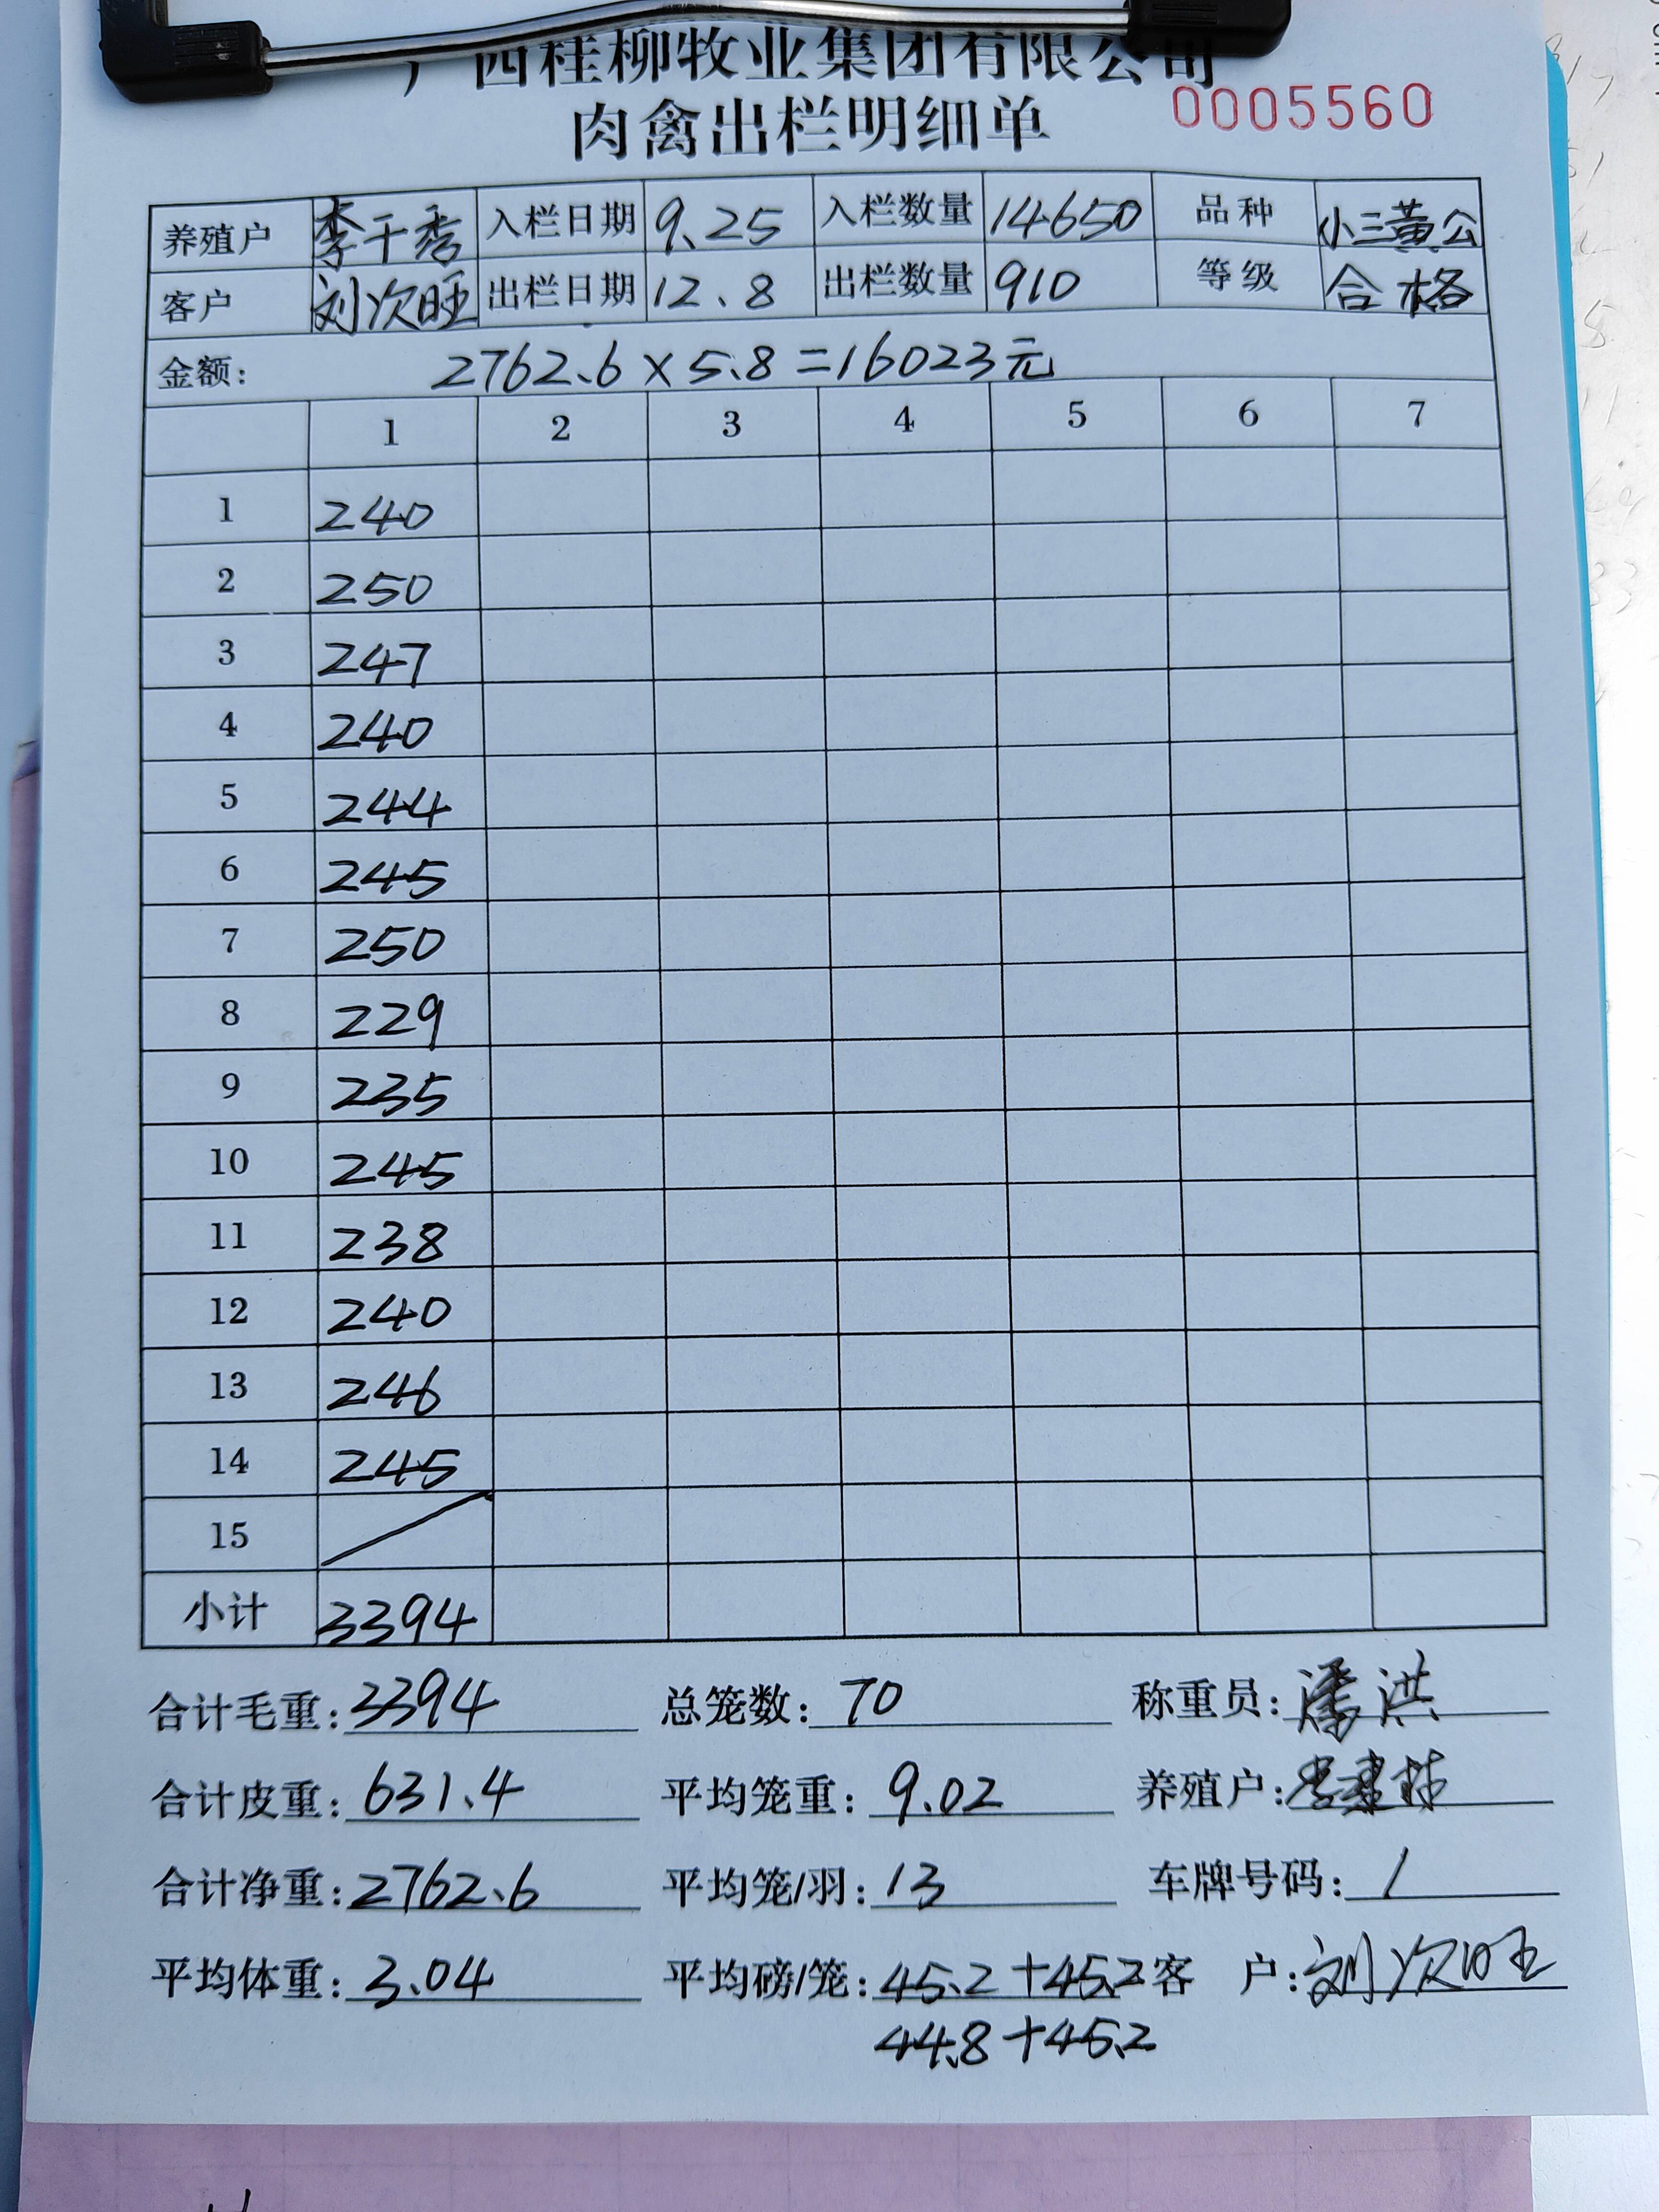 广西桂柳牧业集团有限公司
肉禽出栏明细单 0005560
养殖户 李干秀 入栏日期 9.25 入栏数量 14650 品种 小三黄公
客户 刘次旺 出栏日期 12.8 出栏数量 910 等级 合格
金额: 2762.6×5.8=16023元
1 2 3 4 5 6 7
1 240
2 250
3 247
4 240
5 244
6 245
7 250
8 229
9 235
10 245
11 238
12 240
13 246
14 245
15 /
小计 3394
合计毛重:3394 总笼数:70 称重员:潘洪
合计皮重:631.4 平均笼重:9.02 养殖户:
合计净重:2762.6 平均笼/羽:13 车牌号码:/
平均体重:3.04 平均磅/笼:45.2+45.2 客 户:刘次旺
44.8+45.2